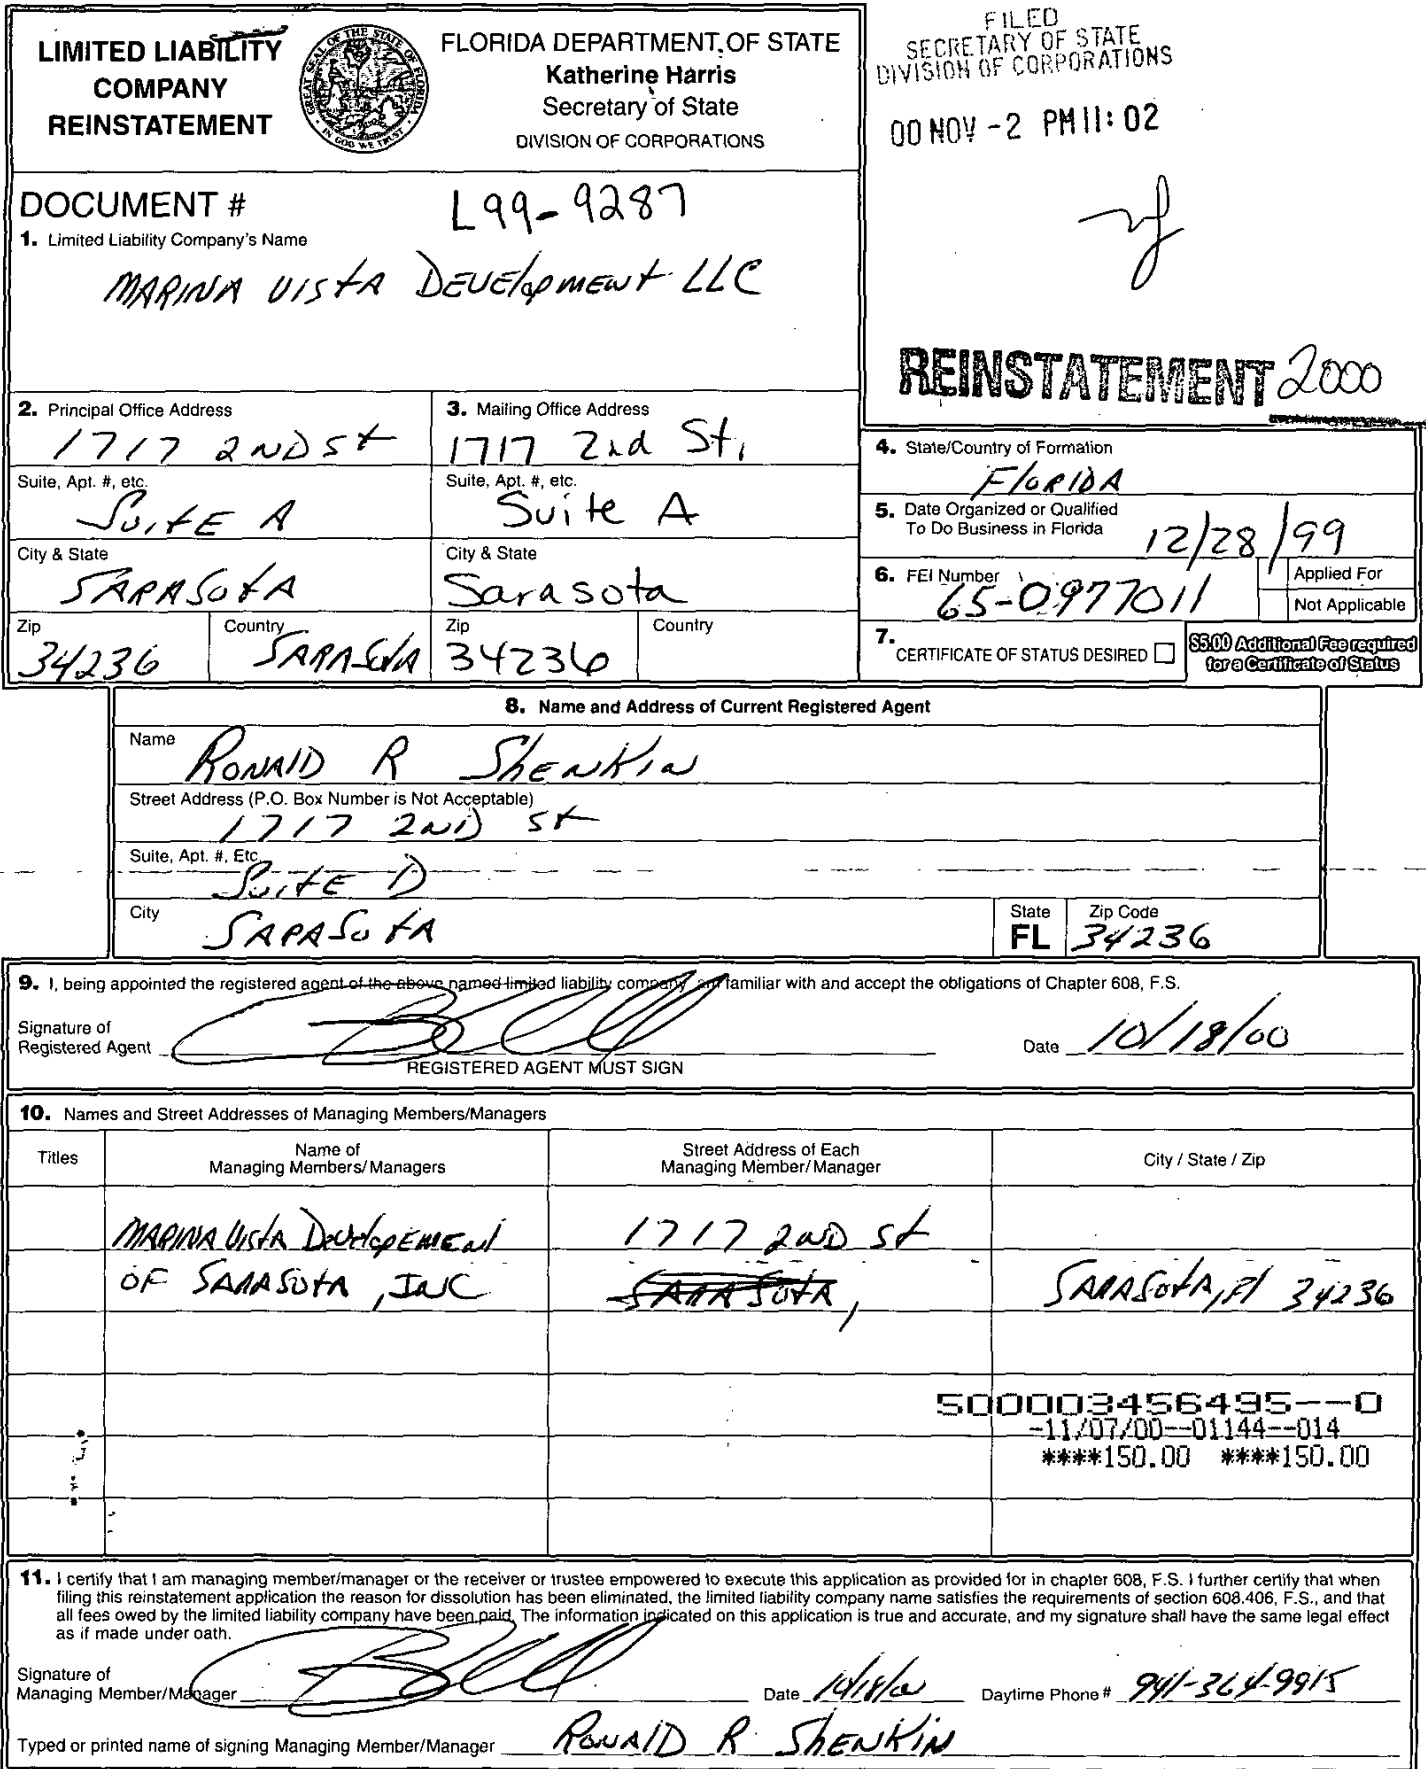 LIMITED LIABILITY
COMPANY
REINSTATEMENT
GREAT SEAL OF THE STATE OF FLORIDA
IN GOD WE TRUST
FLORIDA DEPARTMENT OF STATE
Katherine Harris
Secretary of State
DIVISION OF CORPORATIONS
FILED
SECRETARY OF STATE
DIVISION OF CORPORATIONS
00 NOV -2 PM 11:02
DOCUMENT # L99-9287
1. Limited Liability Company's Name
MARINA VISTA DEVElopMENt LLC
REINSTATEMENT 2000
2. Principal Office Address
1717 2ND St
3. Mailing Office Address
1717 2nd St,
Suite, Apt. #, etc.
SuitE A
Suite, Apt. #, etc.
Suite A
City & State
SARASOtA
City & State
Sarasota
Zip
34236
Country
SARASOtA
Zip
34236
Country
4. State/Country of Formation
FloRIDA
5. Date Organized or Qualified
To Do Business in Florida 12/28/99
6. FEI Number
65-0977011
Applied For
Not Applicable
7. CERTIFICATE OF STATUS DESIRED
$5.00 Additional Fee required
for a Certificate of Status
8. Name and Address of Current Registered Agent
Name RONAlD R ShENKIN
Street Address (P.O. Box Number is Not Acceptable)
1717 2ND St
Suite, Apt. #, Etc.
SuitE D
City SARASOtA
State
FL
Zip Code
34236
9. I, being appointed the registered agent of the above named limited liability company, am familiar with and accept the obligations of Chapter 608, F.S.
Signature of
Registered Agent
Date 10/18/00
REGISTERED AGENT MUST SIGN
10. Names and Street Addresses of Managing Members/Managers
Titles
Name of
Managing Members/Managers
Street Address of Each
Managing Member/Manager
City / State / Zip
MARINA VistA DevelopEMENt 1717 2ND St
OF SARASOtA, INC SARASOtA, SARASOtA, Fl 34236
500003456495--0
-11/07/00--01144--014
****150.00 ****150.00
11. I certify that I am managing member/manager or the receiver or trustee empowered to execute this application as provided for in chapter 608, F.S. I further certify that when
filing this reinstatement application the reason for dissolution has been eliminated, the limited liability company name satisfies the requirements of section 608.406, F.S., and that
all fees owed by the limited liability company have been paid. The information indicated on this application is true and accurate, and my signature shall have the same legal effect
as if made under oath.
Signature of
Managing Member/Manager
Date 10/18/00 Daytime Phone # 941-364-9915
Typed or printed name of signing Managing Member/Manager RONAlD R ShENKIN